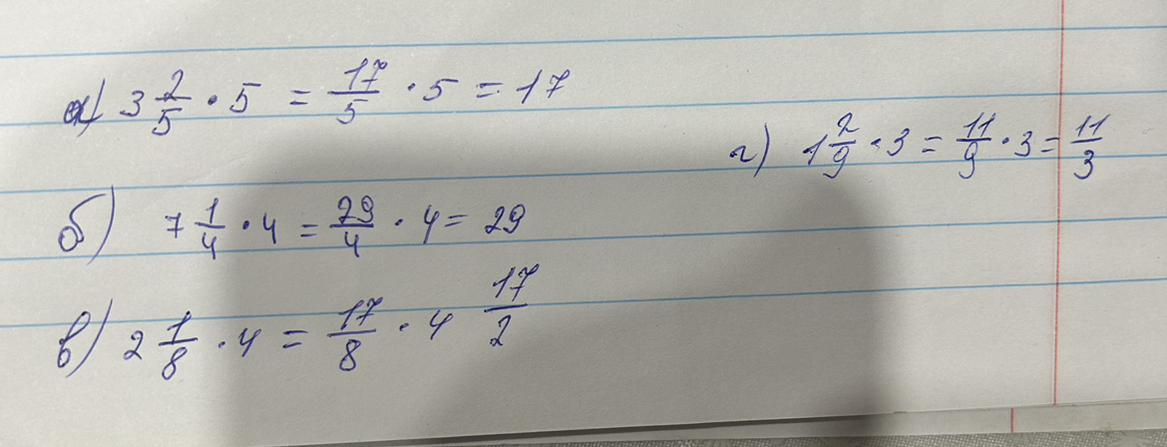 а) 3 2/5 · 5 = 17/5 · 5 = 17
г) 1 2/9 · 3 = 11/9 · 3 = 11/3
б) 7 1/4 · 4 = 29/4 · 4 = 29
в) 2 1/8 · 4 = 17/8 · 4 17/2